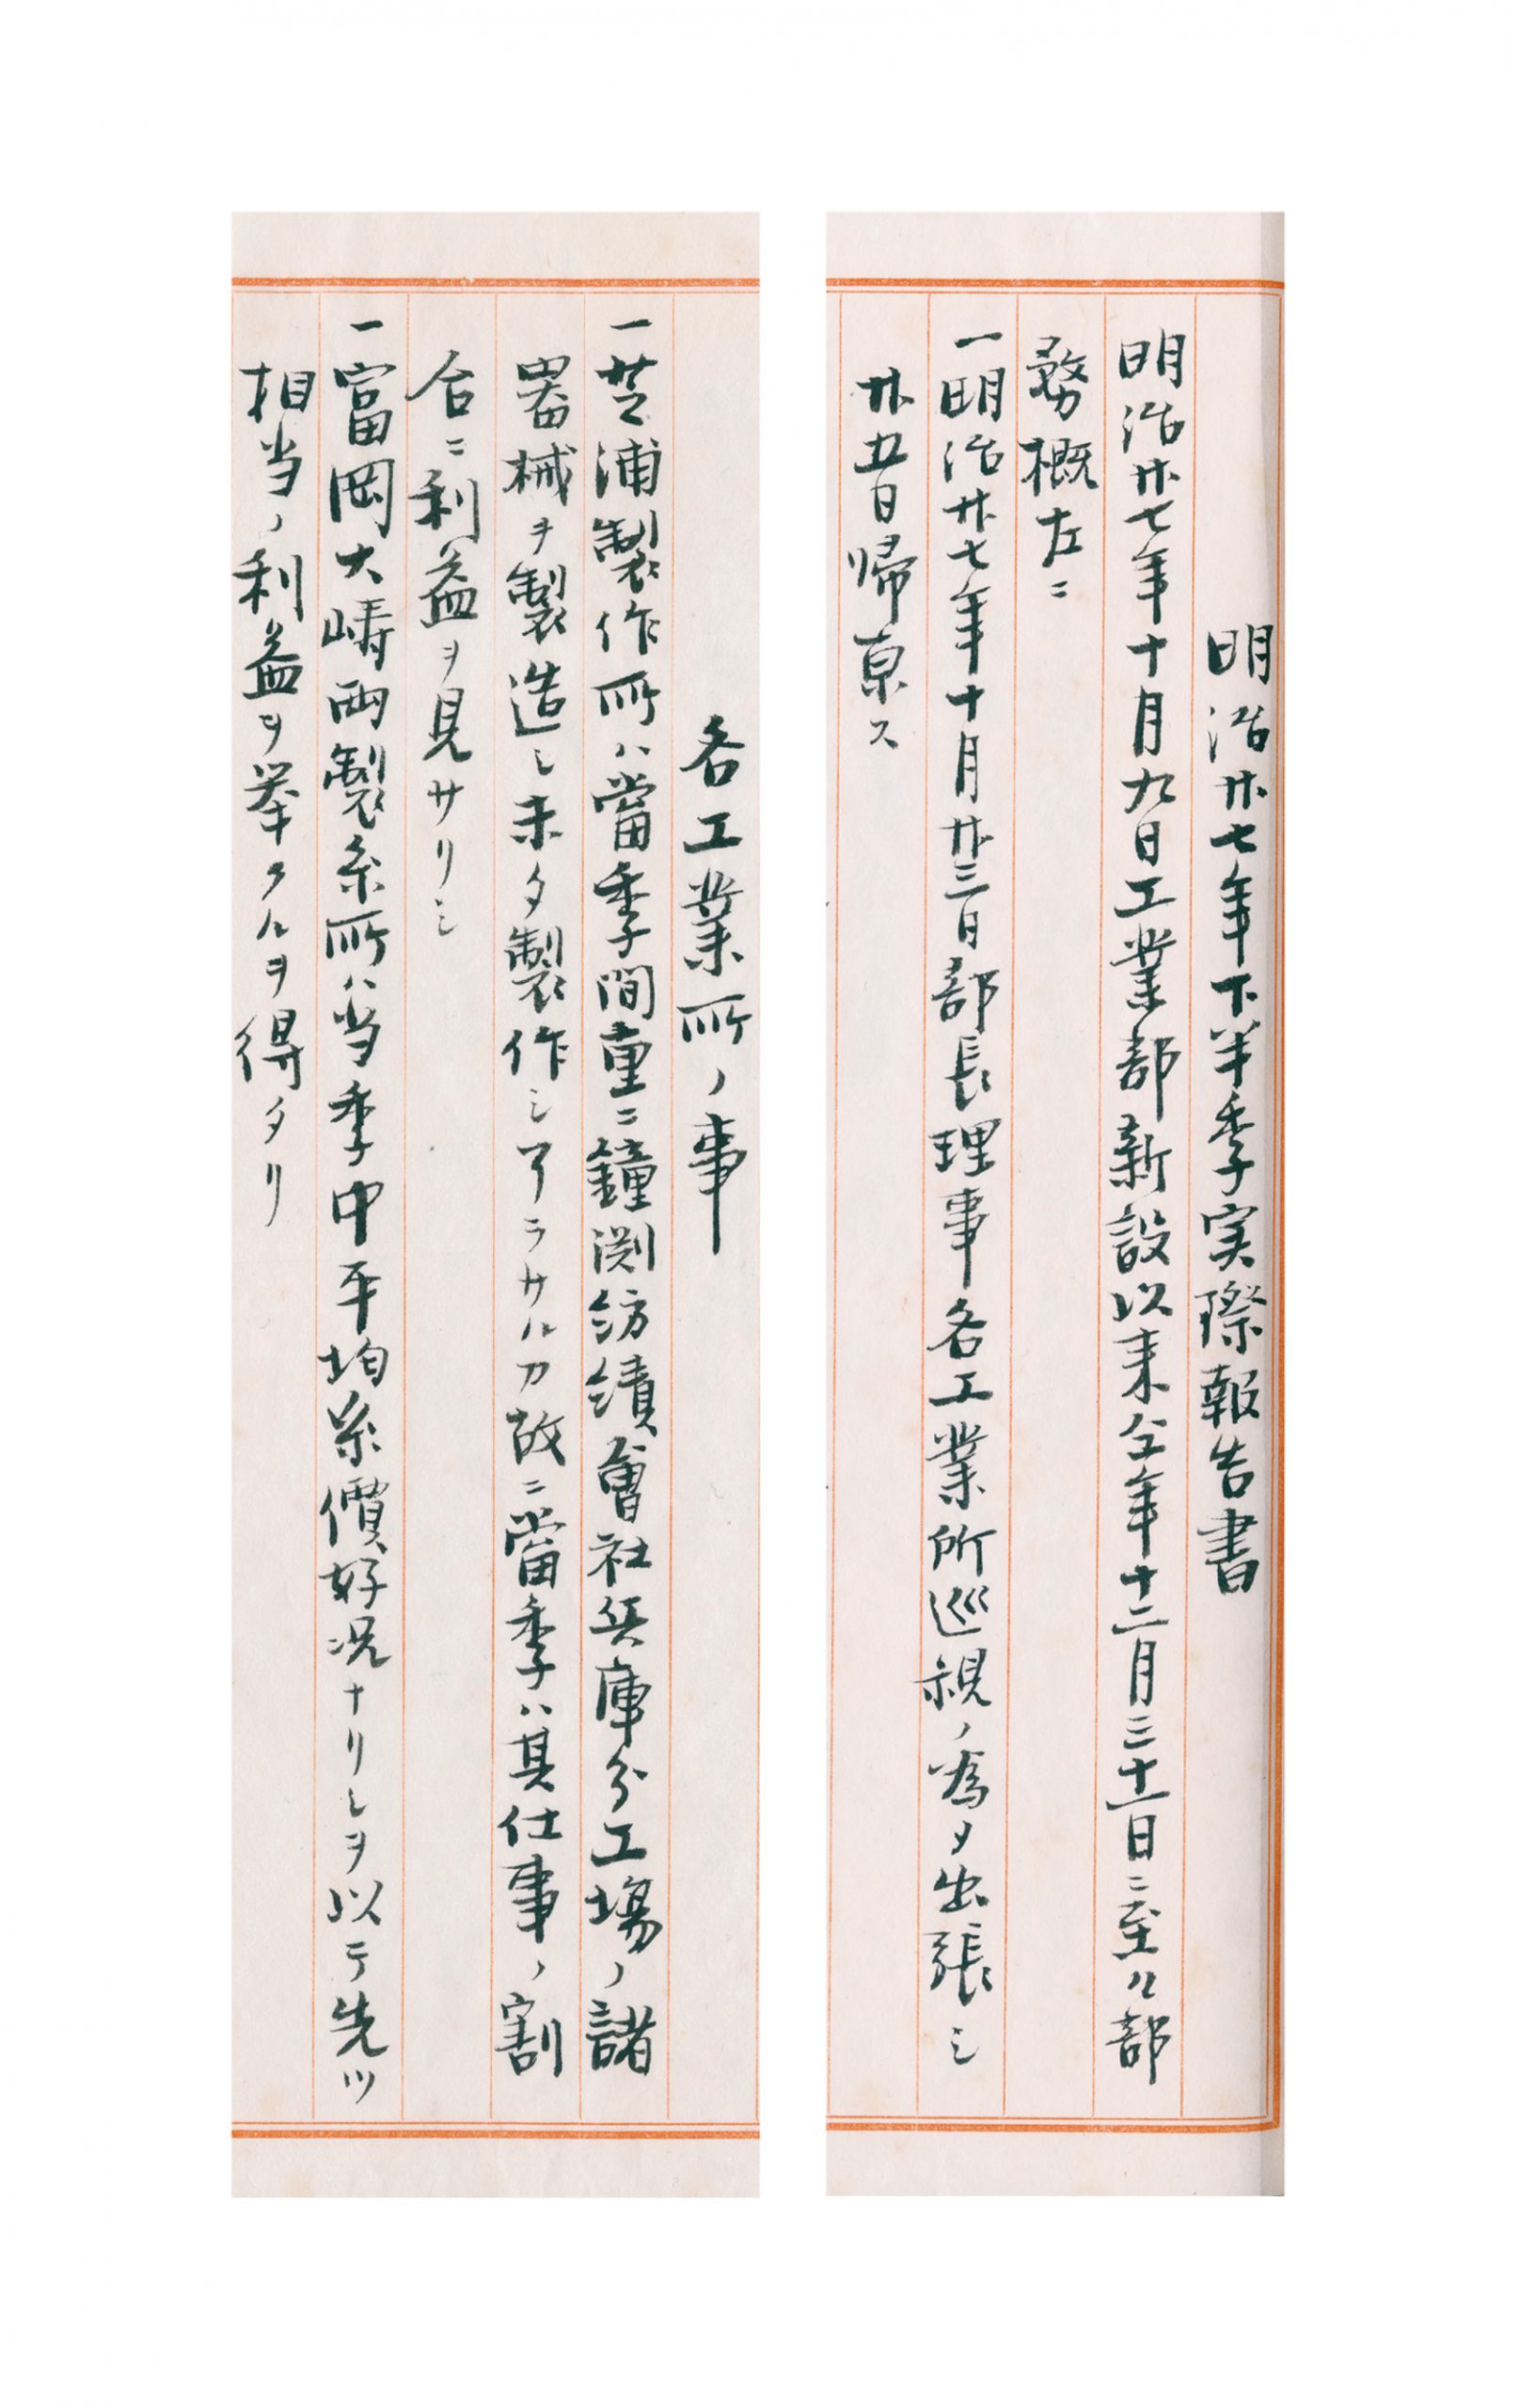 明治廿七年下半季実際報告書
明治廿七年十月九日工業部新設以来仝年十二月三十一日ニ至ル部
務概左ニ
一明治廿七年十月廿三日部長理事各工業所巡視ノ為メ出張シ
廿五日帰京ス
各工業所ノ事
一芝浦製作所ハ當季間重ニ鐘淵紡績會社兵庫分工場ノ諸
器械ヲ製造シ未タ製作シアラサルカ故ニ當季ハ其仕事ノ割
合ニ利益ヲ見サリシ
一富岡大嶹両製糸所ハ当季中平均糸價好況ナリシヲ以テ先ツ
相当ノ利益ヲ挙クルヲ得タリ